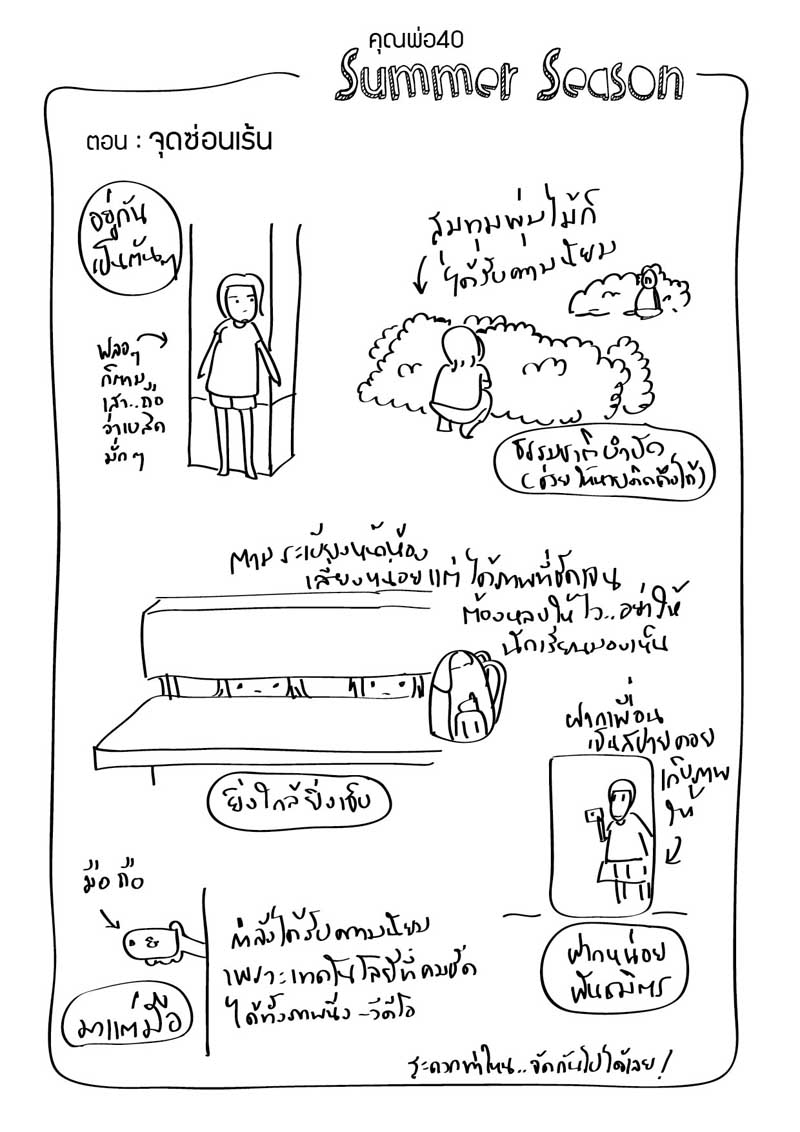 คุณพ่อ40
Summer Season
ตอน : จุดซ่อนเร้น
อยู่กัน
เป็นต้นๆ
สุมทุมพุ่มไม้ก็
ได้รับความนิยม
หลอๆ
ก็ตาม
เสา..ถือ
ว่าเบสิค
มั่กๆ
ธรรมชาติบำบัด
(ช่วยให้นายคิดถึงได้)
ตามระเบียงหน้าห้อง
เสี่ยงหน่อยแต่ได้ภาพที่ชัดเจน
ต้องหลบให้ไว..อย่าให้
นักเรียนมองเห็น
ยิ่งใกล้ยิ่งเจ็บ
ฝากเพื่อน
เป็นสปายคอย
เก็บภาพ
ให้
มือถือ
กำลังได้รับความนิยม
เพราะเทคโนโลยีที่คมชัด
ได้ทั้งภาพนิ่ง-วีดีโอ
ฝากหน่อย
พันธมิตร
มาแต่มือ
สะดวกท่าไหน..จัดกันไปได้เลย!